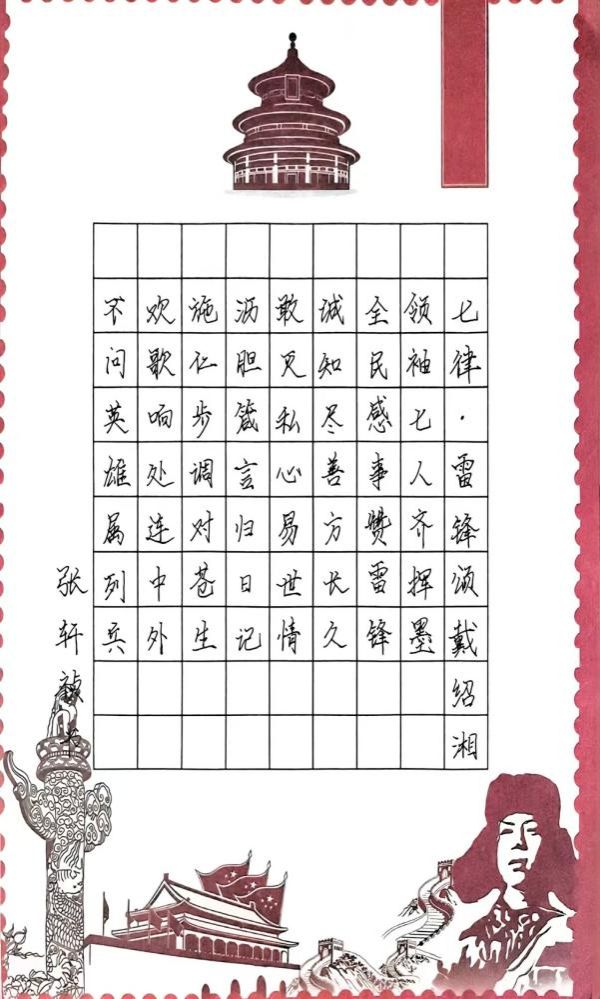 七律·雷锋颂戴绍湘
领袖七人齐挥墨
全民感事赞雷锋
诚知尽善方长久
敢见私心易世情
沥胆箴言归日记
施仁步调对苍生
欢歌响处连中外
不问英雄属列兵
张轩书